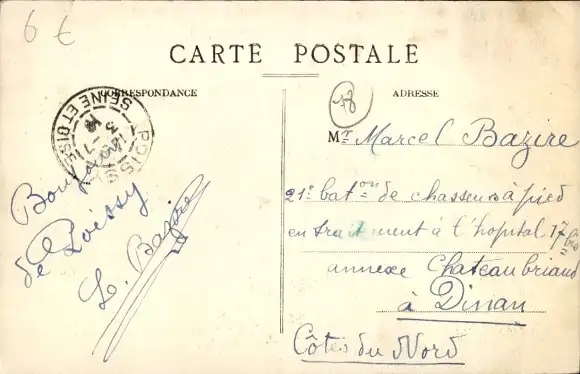 6 €
CARTE POSTALE
CORRESPONDANCE
ADRESSE
78
POISSY
SEINE ET OISE
Bonjour
de Poissy
L. Bazire
Mr Marcel Bazire
21e baton de chasseurs à pied
en traitement à l'hopital 17 bis
annexe Chateaubriand
à Dinan
Côtes du Nord